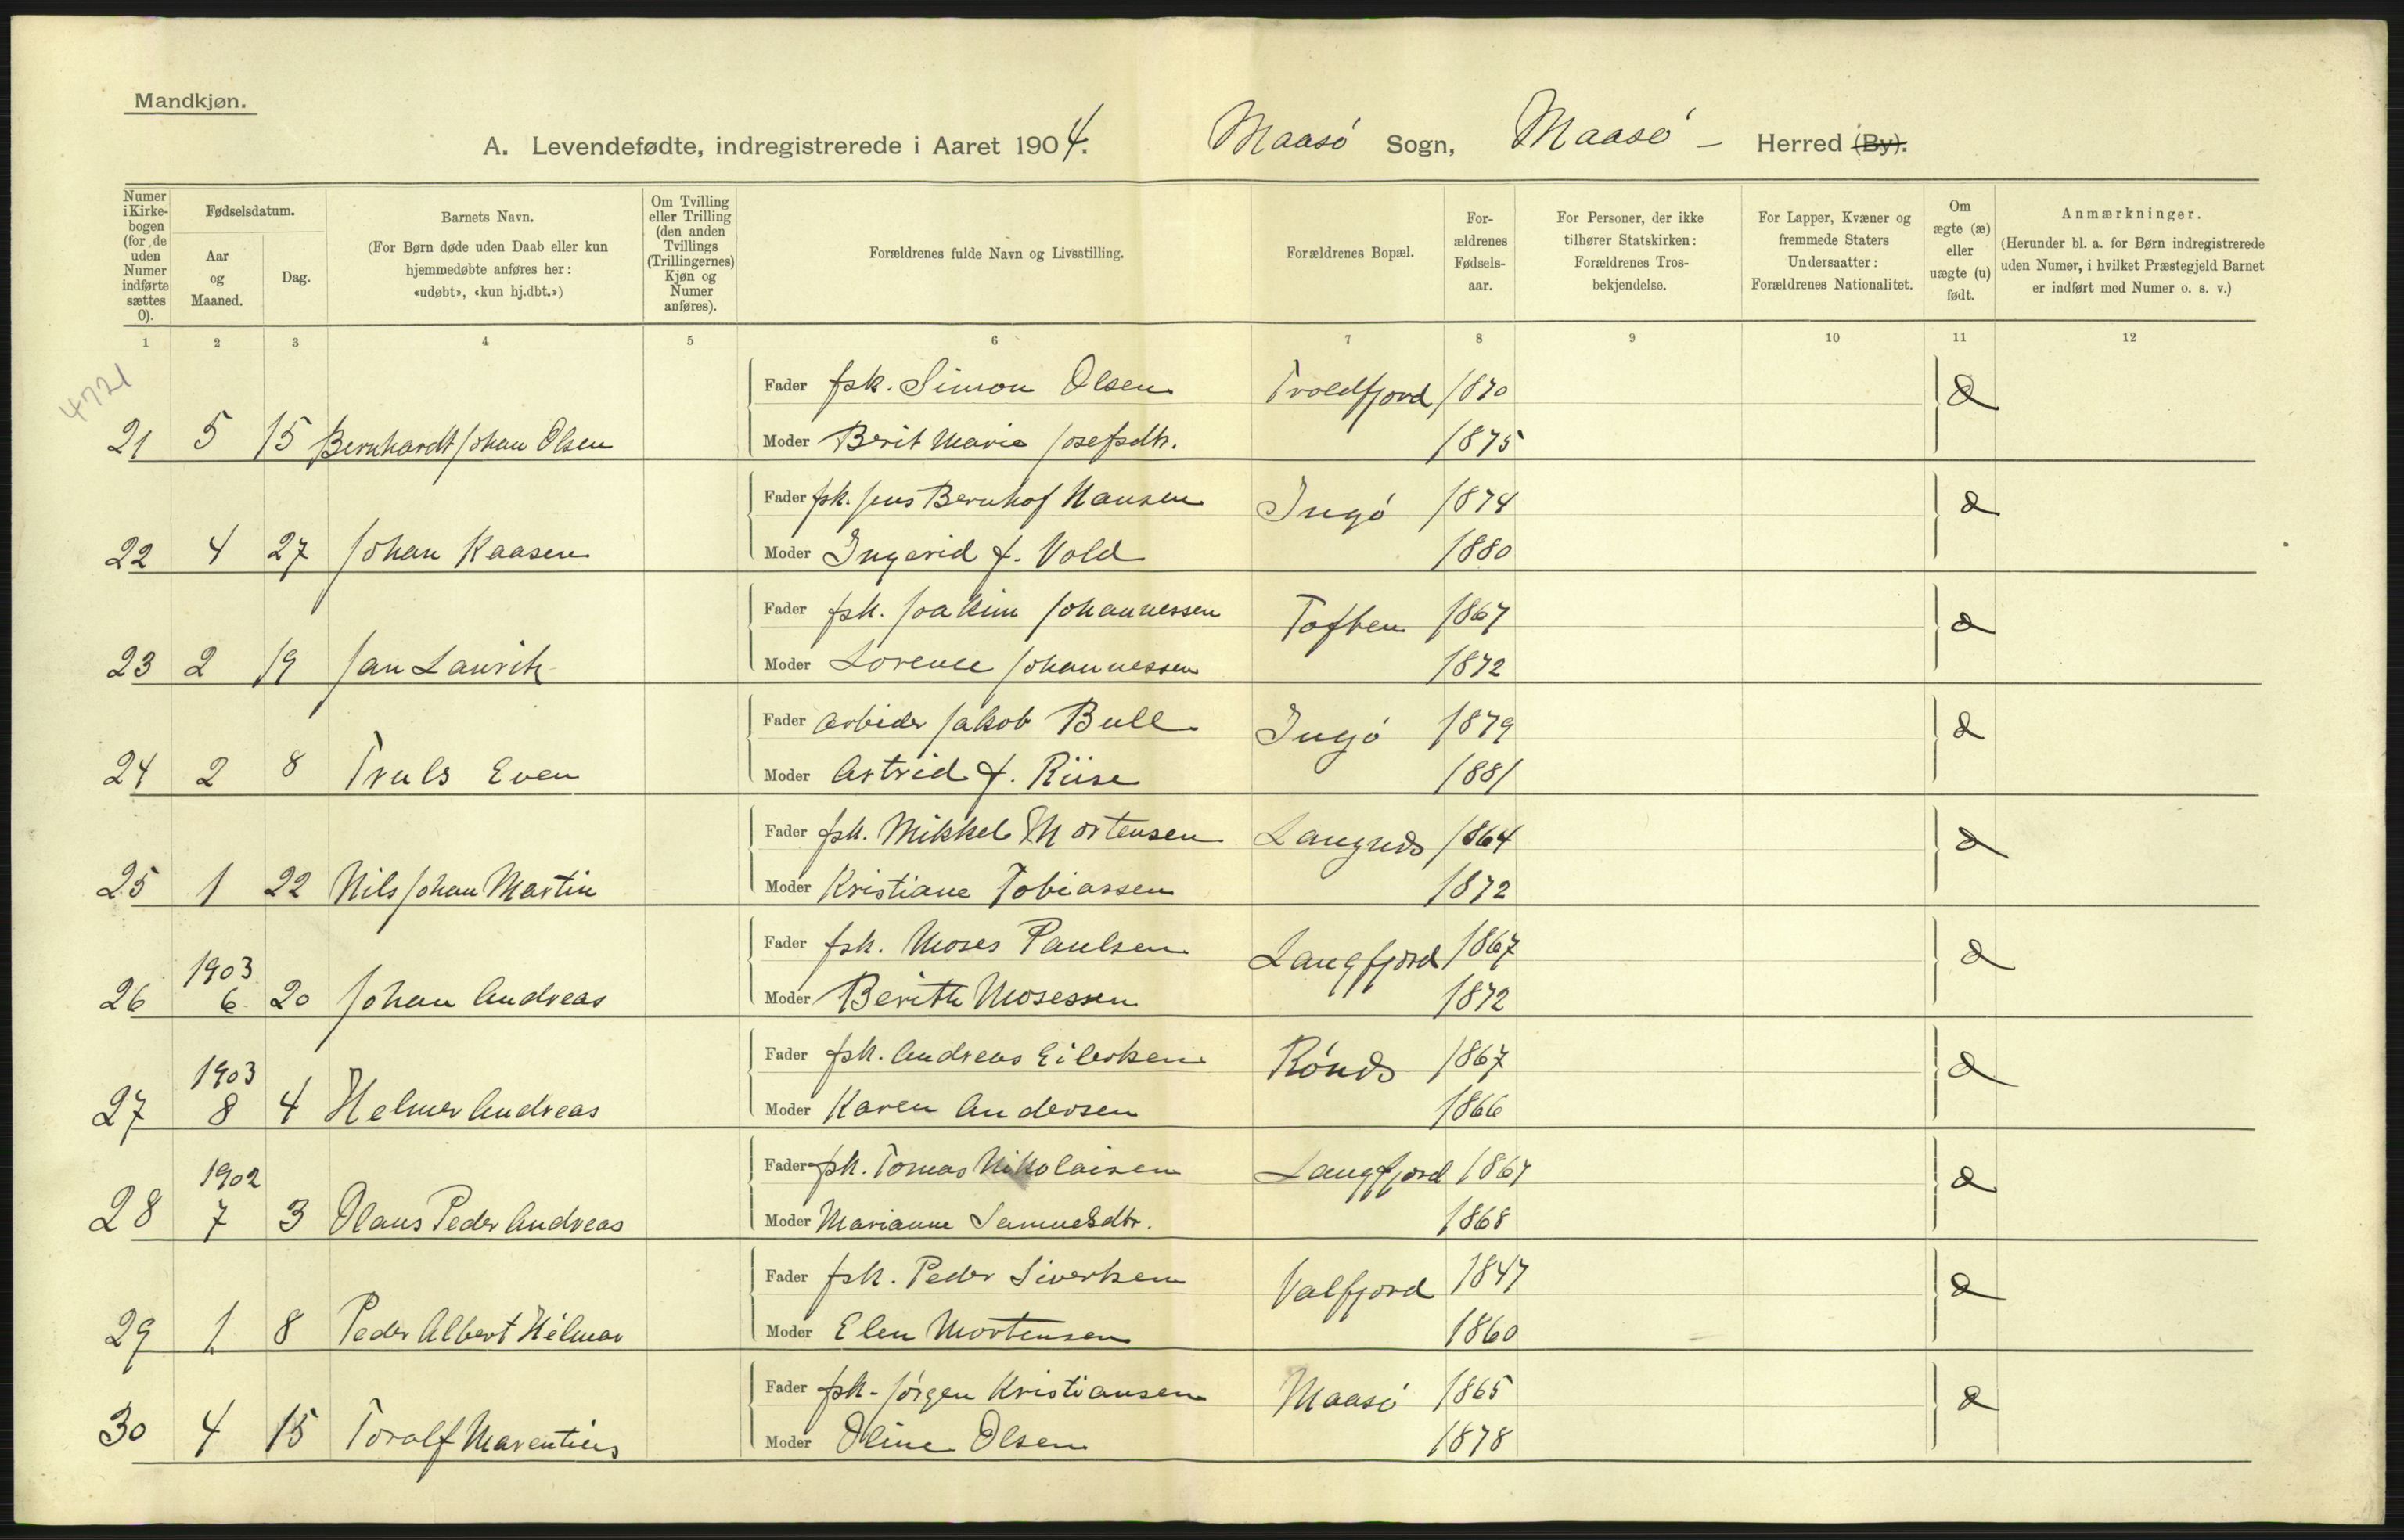 Mandkjøn.
A. Levendefødte, indregistrerede i Aaret 1904. Maasø Sogn, Maasø - Herred (By).
Numer i Kirkebogen (for de uden Numer indførte sættes 0).
Fødselsdatum.
Aar og Maaned.
Dag.
Barnets Navn.
(For Børn døde uden Daab eller kun hjemmedøbte anføres her: «udøbt», «kun hj.dbt.»)
Om Tvilling eller Trilling (den anden Tvillings (Trillingernes) Kjøn og Numer anføres).
Forældrenes fulde Navn og Livsstilling.
Forældrenes Bopæl.
Forældrenes Fødselsaar.
For Personer, der ikke tilhører Statskirken: Forældrenes Trosbekjendelse.
For Lapper, Kvæner og fremmede Staters Undersaatter: Forældrenes Nationalitet.
Om ægte (æ) eller uægte (u) født.
Anmærkninger.
(Herunder bl. a. for Børn indregistrerede uden Numer, i hvilket Præstegjeld Barnet er indført med Numer o. s. v.)
1 2 3 4 5 6 7 8 9 10 11 12
4721
Fader fsk. Simon Olsen Troldfjord 1870 æ
21 5 15 Bernhardt Johan Olsen Moder Berit Marie Josefsdtr. 1875
Fader fsk. Jens Bernhof Hansen Ingø 1874 æ
22 4 27 Johan Kaasen Moder Ingerid f. Vold 1880
Fader fsk. Joakim Johannessen Toften 1867 æ
23 2 19 Jan Lauritz Moder Lorence Johannessen 1872
Fader arbeider Jakob Bull Ingø 1879 æ
24 2 8 Truls Even Moder Astrid f. Riise 1881
Fader fsk. Mikkel Mortensen Langnæs 1864 æ
25 1 22 Nils Johan Martin Moder Kristiane Tobiassen 1872
Fader fsk. Moses Paulsen Langfjord 1867 æ
26 1903 6 20 Johan Andreas Moder Berith Mosessen 1872
Fader fsk. Andreas Eilertsen Rønæs 1867 æ
27 1903 8 4 Helmer Andreas Moder Karen Andersen 1866
Fader fsk. Tomas Nikolaisen Langfjord 1867 æ
28 1902 7 3 Olaus Peder Andreas Moder Marianne Samuelsdtr. 1868
Fader fsk. Peder Sivertsen Valfjord 1847 æ
29 1 8 Peder Albert Hilmar Moder Elen Mortensen 1860
Fader fsk. Jørgen Kristiansen Maasø 1865 æ
30 4 15 Toralf Marentius Moder Oline Olsen 1878